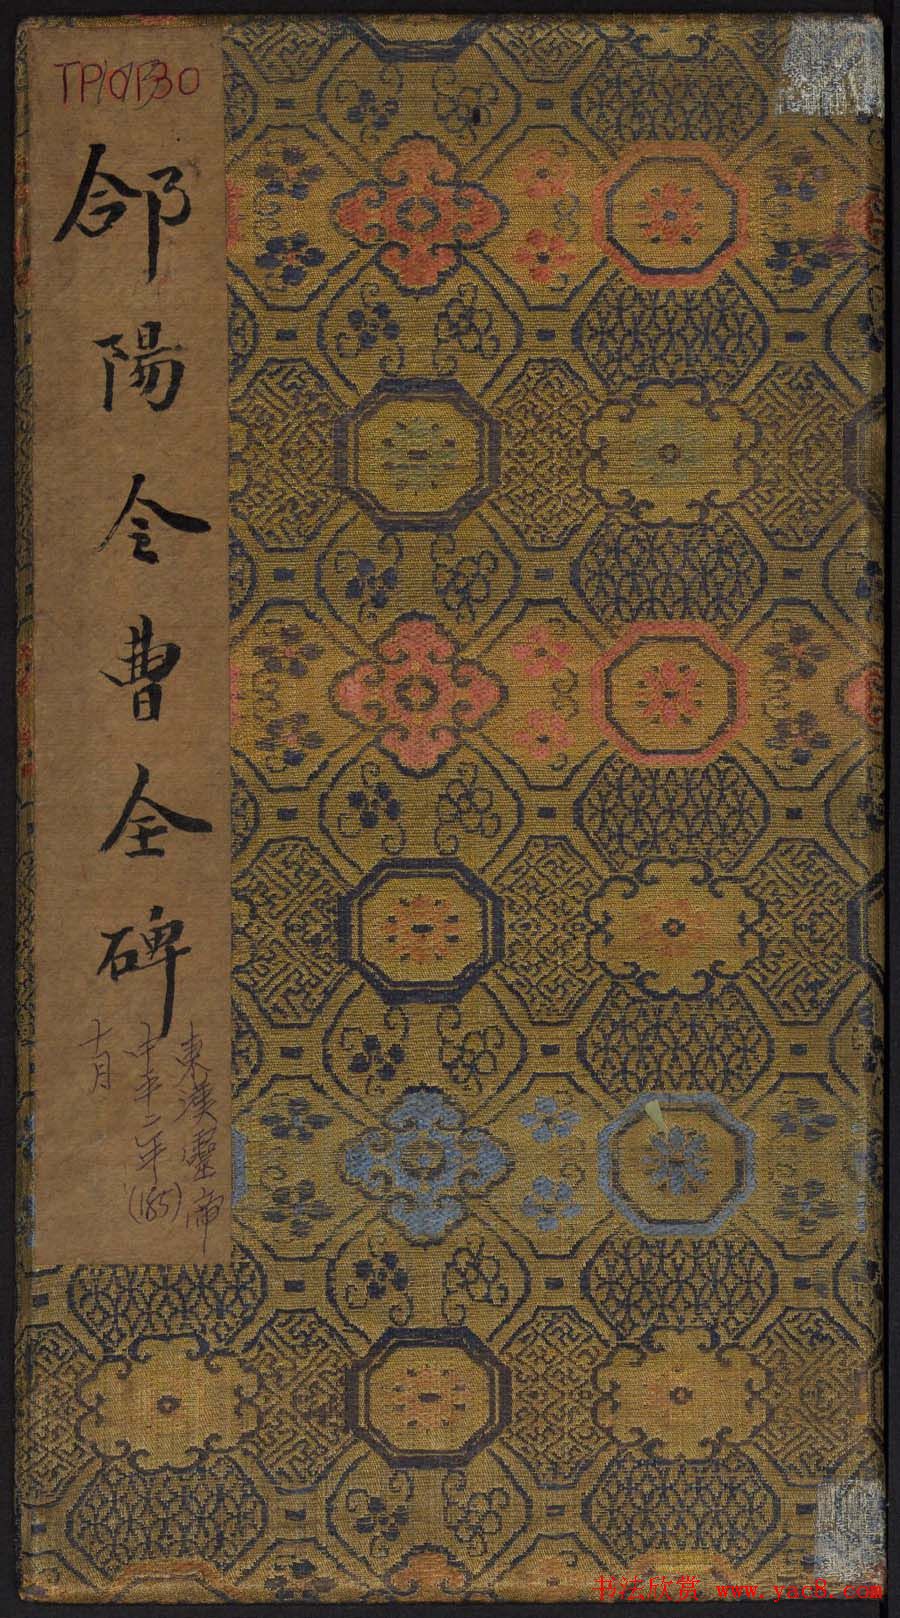 TP10/1330
郃陽令曹全碑
東漢靈帝
中平二年(185)
十月
书法欣赏 www.yac8.com